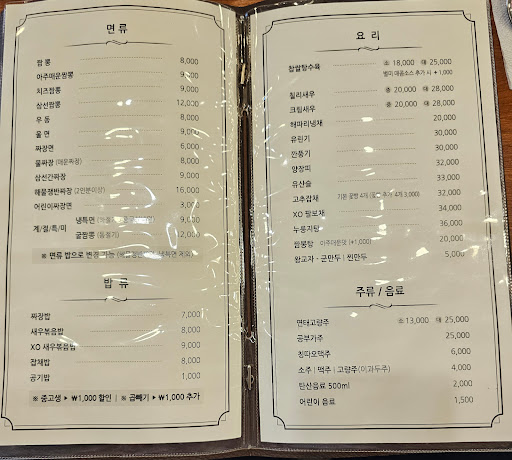 면류
짬 뽕 8,000
아주매운짬뽕 9,000
치즈짬뽕 9,000
삼선짬뽕 12,000
우 동 8,000
울 면 9,000
짜장면 6,000
물짜장 (매운짜장) 8,000
삼선간짜장 9,000
해물쟁반짜장 (2인분이상) 16,000
어린이짜장면 3,000
계/절/특/미
냉특면 9,000
굴짬뽕 (동절기) 12,000
※ 면류 밥으로 변경 가능
밥 류
짜장밥 7,000
새우볶음밥 8,000
XO 새우볶음밥 9,000
잡채밥 8,000
공기밥 1,000
※ 중고생 ▶ ₩1,000 할인 | ※ 곱빼기 ▶ ₩1,000 추가
요 리
찹쌀탕수육 소 18,000 대 25,000
별미 매콤소스 추가 시 + 1,000
칠리새우 중 20,000 대 28,000
크림새우 중 20,000 대 28,000
해파리냉채 20,000
유린기 30,000
깐풍기 30,000
양장피 32,000
유산슬 33,000
고추잡채 기본 꽃빵 4개 32,000
XO 팔보채 34,000
누룽지탕 36,000
짬뽕탕 아주매운맛 (+1,000) 20,000
왕교자 - 군만두 | 찐만두 5,000
주류 / 음료
연태고량주 소 13,000 대 25,000
공부가주 25,000
칭따오맥주 6,000
소주 | 맥주 | 고량주(이과두주) 4,000
탄산음료 500ml 2,000
어린이 음료 1,500